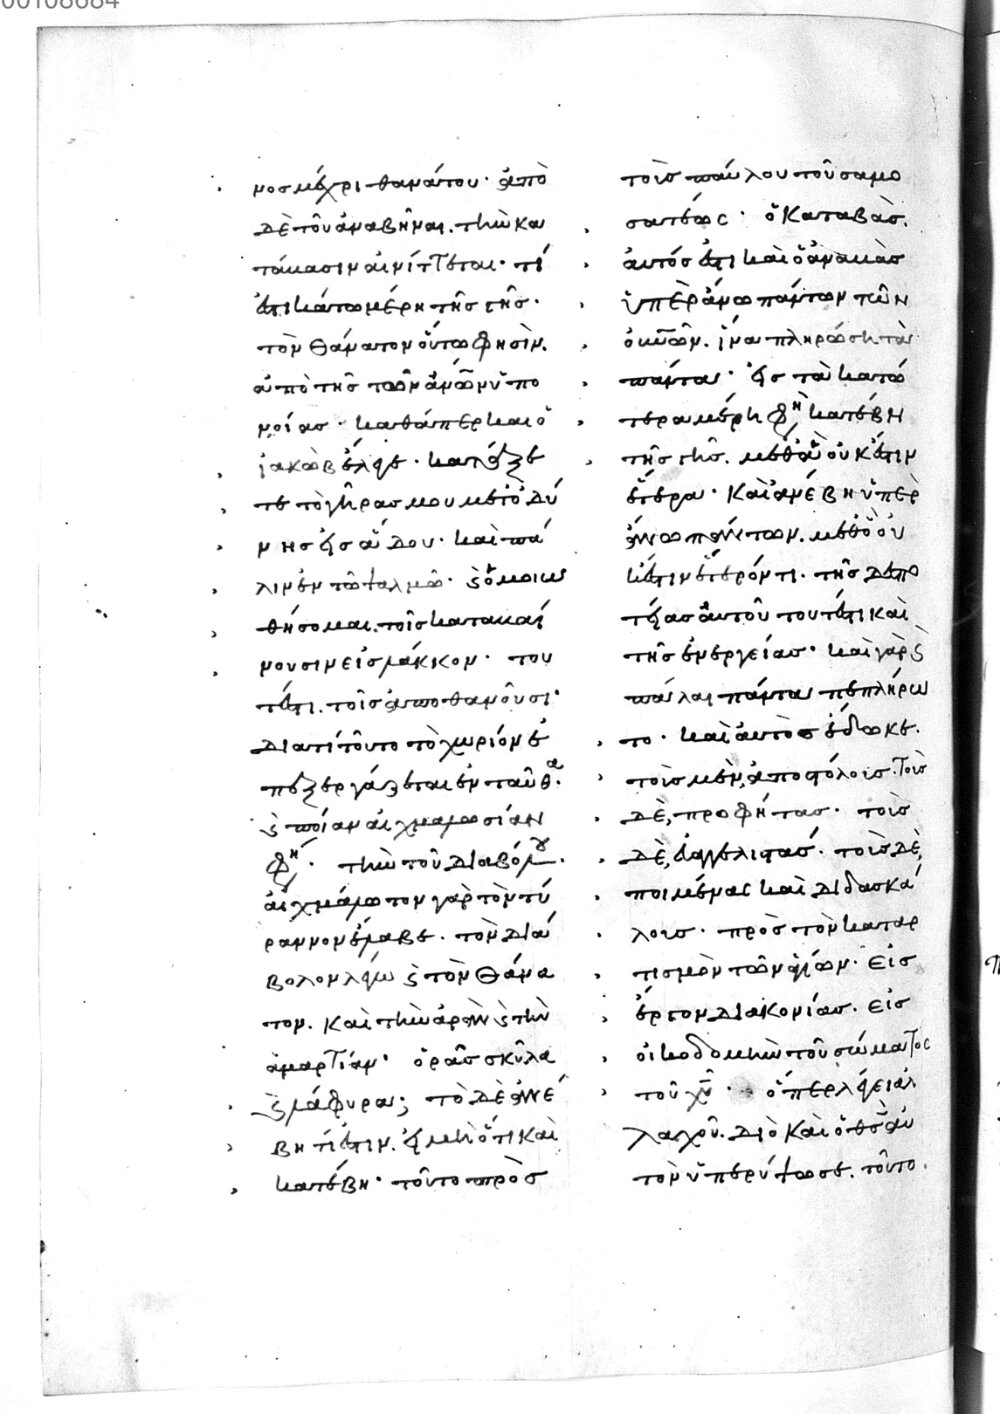 00108684
νος μέχρι θανάτου· ἀπὸ
δὲ τοῦ ἀναβῆναι. τὴν κα
τάβασιν αἰνίττεται· τί
ἐστι κάτω μέρη τῆς γῆς·
τὸν θάνατον οὕτω φησὶν.
ἀπὸ τῆς τῶν ἀνῶν ὑπο
νοίας· καθάπερ καὶ ὁ
ἰακὼβ ἔλεγε· κατάξε
τε τὸ γῆρας μου μετ ὀδύ
νης εἰς ἅδου· καὶ πά
λιν ἐν τῶ ψαλμῶ· ς ὁμοιω
θήσομαι. τοῖς καταβαί
νουσιν εἰς λάκκον· του
τέστι. τοῖς ἀποθανοῦσι·
διατί τοῦτο τὸ χωρίον ἐ
πεξεργάζεται ἐνταῦθα·
ς ποίαν αἰχμαλωσίαν
φη· τὴν τοῦ διαβόλου·
αἰχμάλωτον γὰρ τὸν τύ
ραννον ἔλαβε· τὸν διά
βολον λέγω ς τὸν θάνα
τον. καὶ τὴν ἀρὰν ς τὴν
ἁμαρτίαν· ὁρᾶς σκῦλα
ς λάφυρα; τὸ δὲ ἀνέ
βη τί ἐστιν. εἰ μὴ ὅτι καὶ
κατέβη· τοῦτο πρὸς
τοὺς παύλου τοῦ σαμο
σατέως· ὁ καταβὰς.
αὐτός ἐστι καὶ ὁ ἀναβὰς
ὑπεράνω πάντων τῶν
οὐνῶν. ἵνα πληρώση τὰ
πάντα· εἰς τὰ κατώ
τερα μέρη φη κατέβη
τῆς γῆς. μεθ ἃ οὐκ ἔστιν
ἕτερα· καὶ ἀνέβη ὑπερ
άνω πάντων. μεθ ὃ οὐ
κ ἔστιν ἕτερόν τι· τῆς δεσπο
τείας αὐτοῦ τουτέστι καὶ
τῆς ἐνεργείας· καὶ γὰρ ς
πάλαι πάντα πεπλήρω
το· καὶ αὐτὸς ἔδωκε.
τοὺς μὲν, ἀποστόλους. τοὺς
δὲ, προφήτας· τοὺς
δὲ, εὐαγγελιστάς· τοὺς δὲ,
ποιμένας καὶ διδασκά
λους· πρὸς τὸν καταρ
τισμὸν τῶν ἁγίων· εἰς
ἔργον διακονίας. εἰς
οἰκοδομὴν τοῦ σώματος
τοῦ χῦ· ὅπερ λέγει ἀλ
λαχοῦ. διὸ καὶ ὁ θς αὐ
τὸν ὑπερύψωσε. τοῦτο.